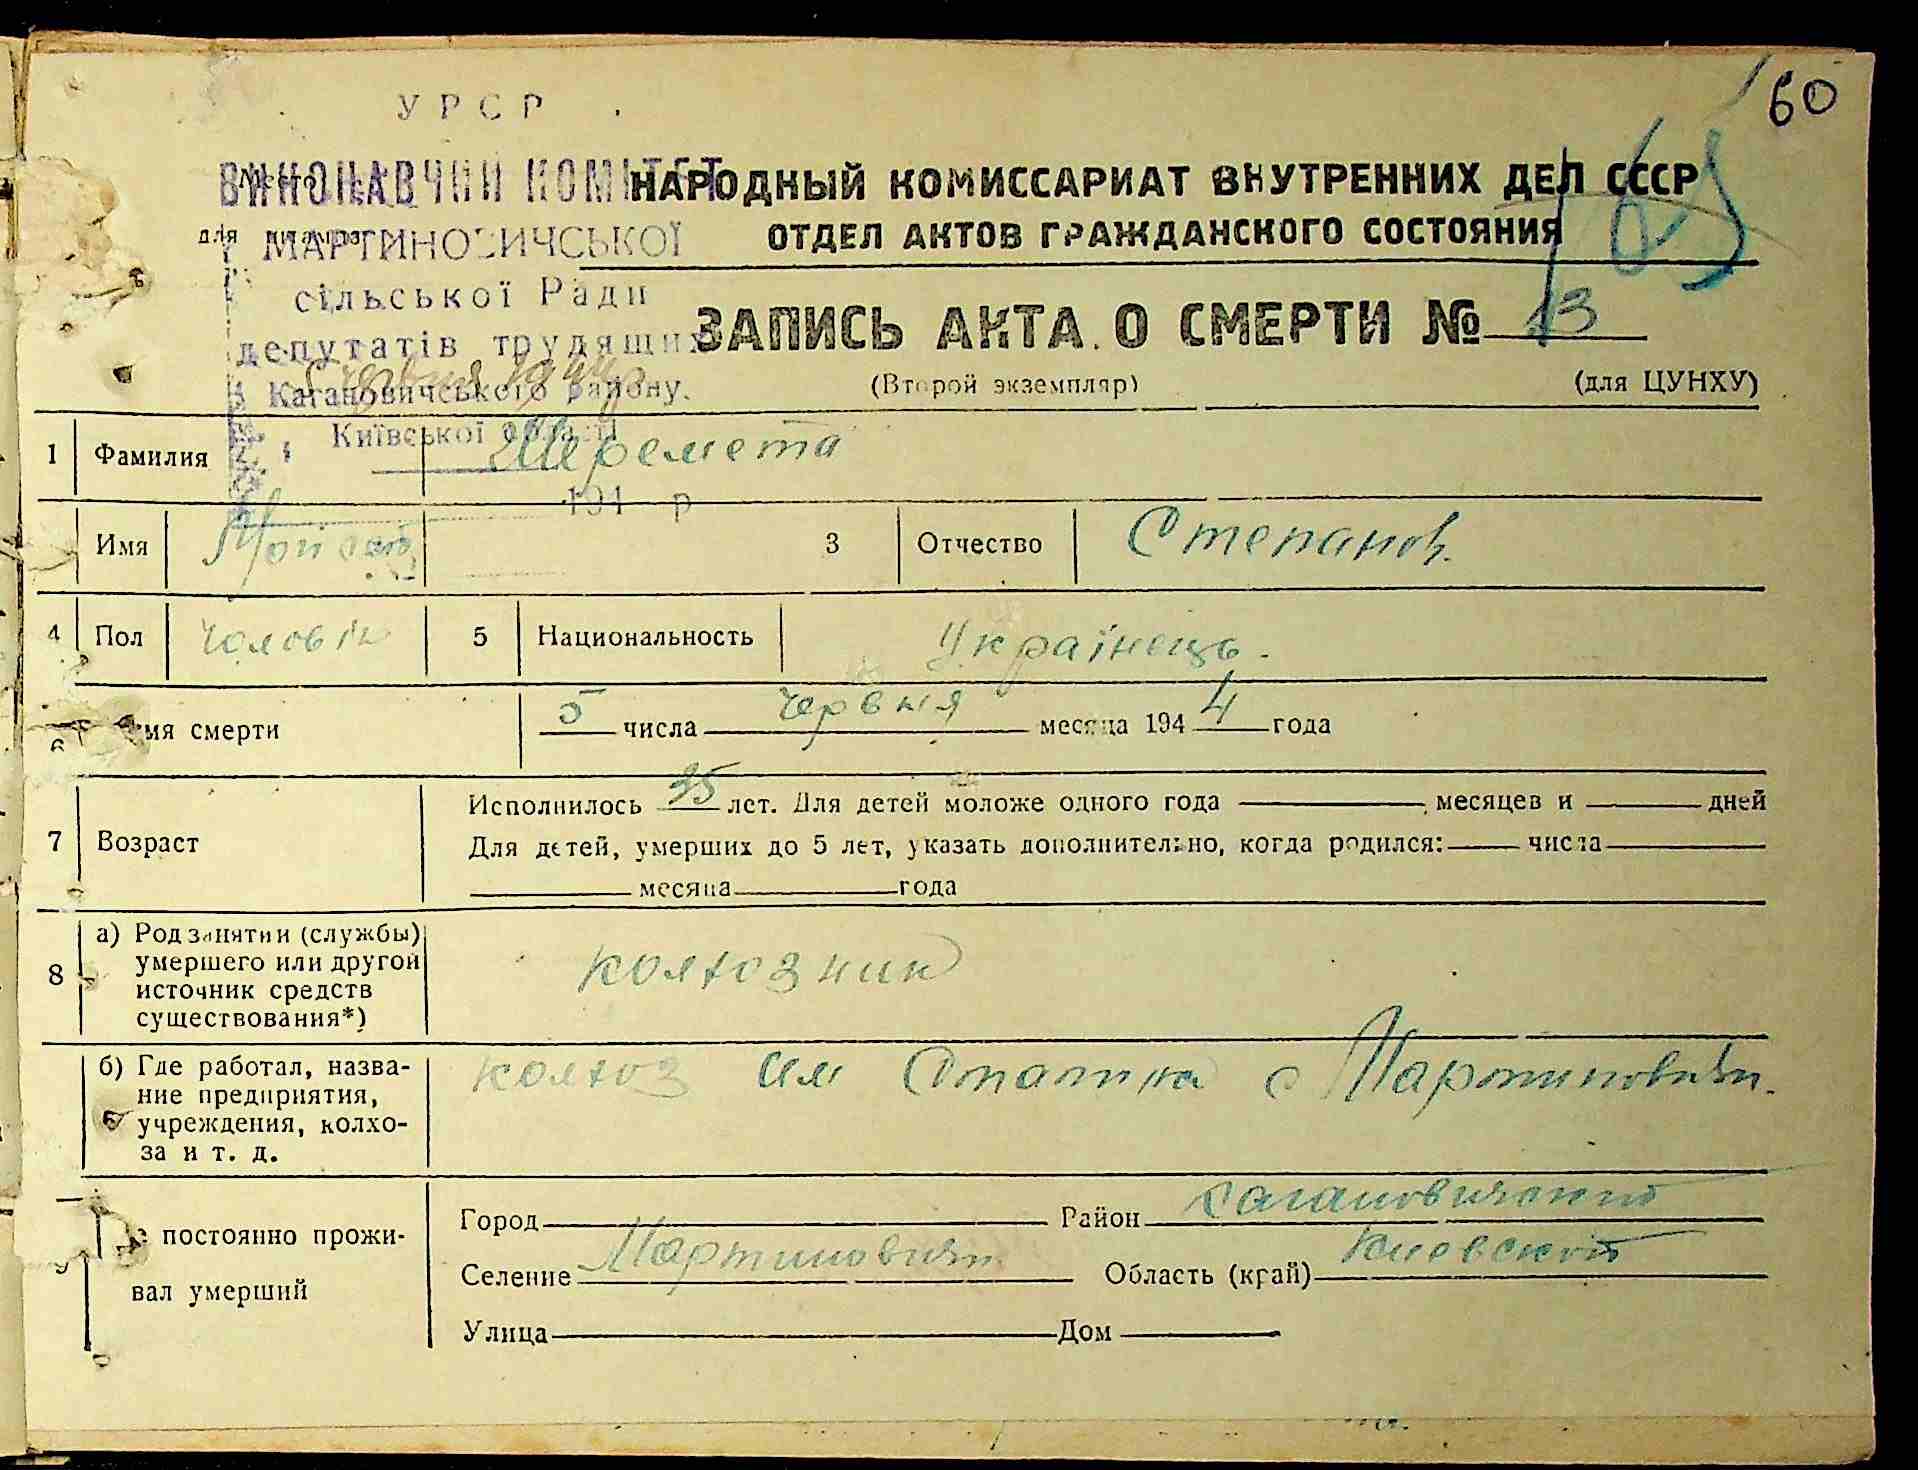 60
УРСР
ВИКОНАВЧИЙ КОМІТЕТ
НАРОДНЫЙ КОМИССАРИАТ ВНУТРЕННИХ ДЕЛ СССР
МАРТИНОВИЧСЬКОЇ
ОТДЕЛ АКТОВ ГРАЖДАНСКОГО СОСТОЯНИЯ
сільської Ради
депутатів трудящих
ЗАПИСЬ АКТА О СМЕРТИ № 13
Кагановичського району.
(Второй экземпляр) (для ЦУНХУ)
Київської області
194 р
1 Фамилия Шеремета
Имя 3 Отчество Степанов.
4 Пол чоловік 5 Национальность Українець.
6 смерти 5 числа червня месяца 1944 года
7 Возраст
Исполнилось 35 лет. Для детей моложе одного года месяцев и дней
Для детей, умерших до 5 лет, указать дополнительно, когда родился: числа
месяца года
8 а) Род занятий (службы)
умершего или другой
источник средств
существования*)
колхозник
б) Где работал, назва-
ние предприятия,
учреждения, колхо-
за и т. д.
колхоз им Сталина с Мартиновичи.
постоянно прожи-
вал умерший
Город Район Кагановический
Селение Мартиновичи Область (край) Киевской
Улица Дом